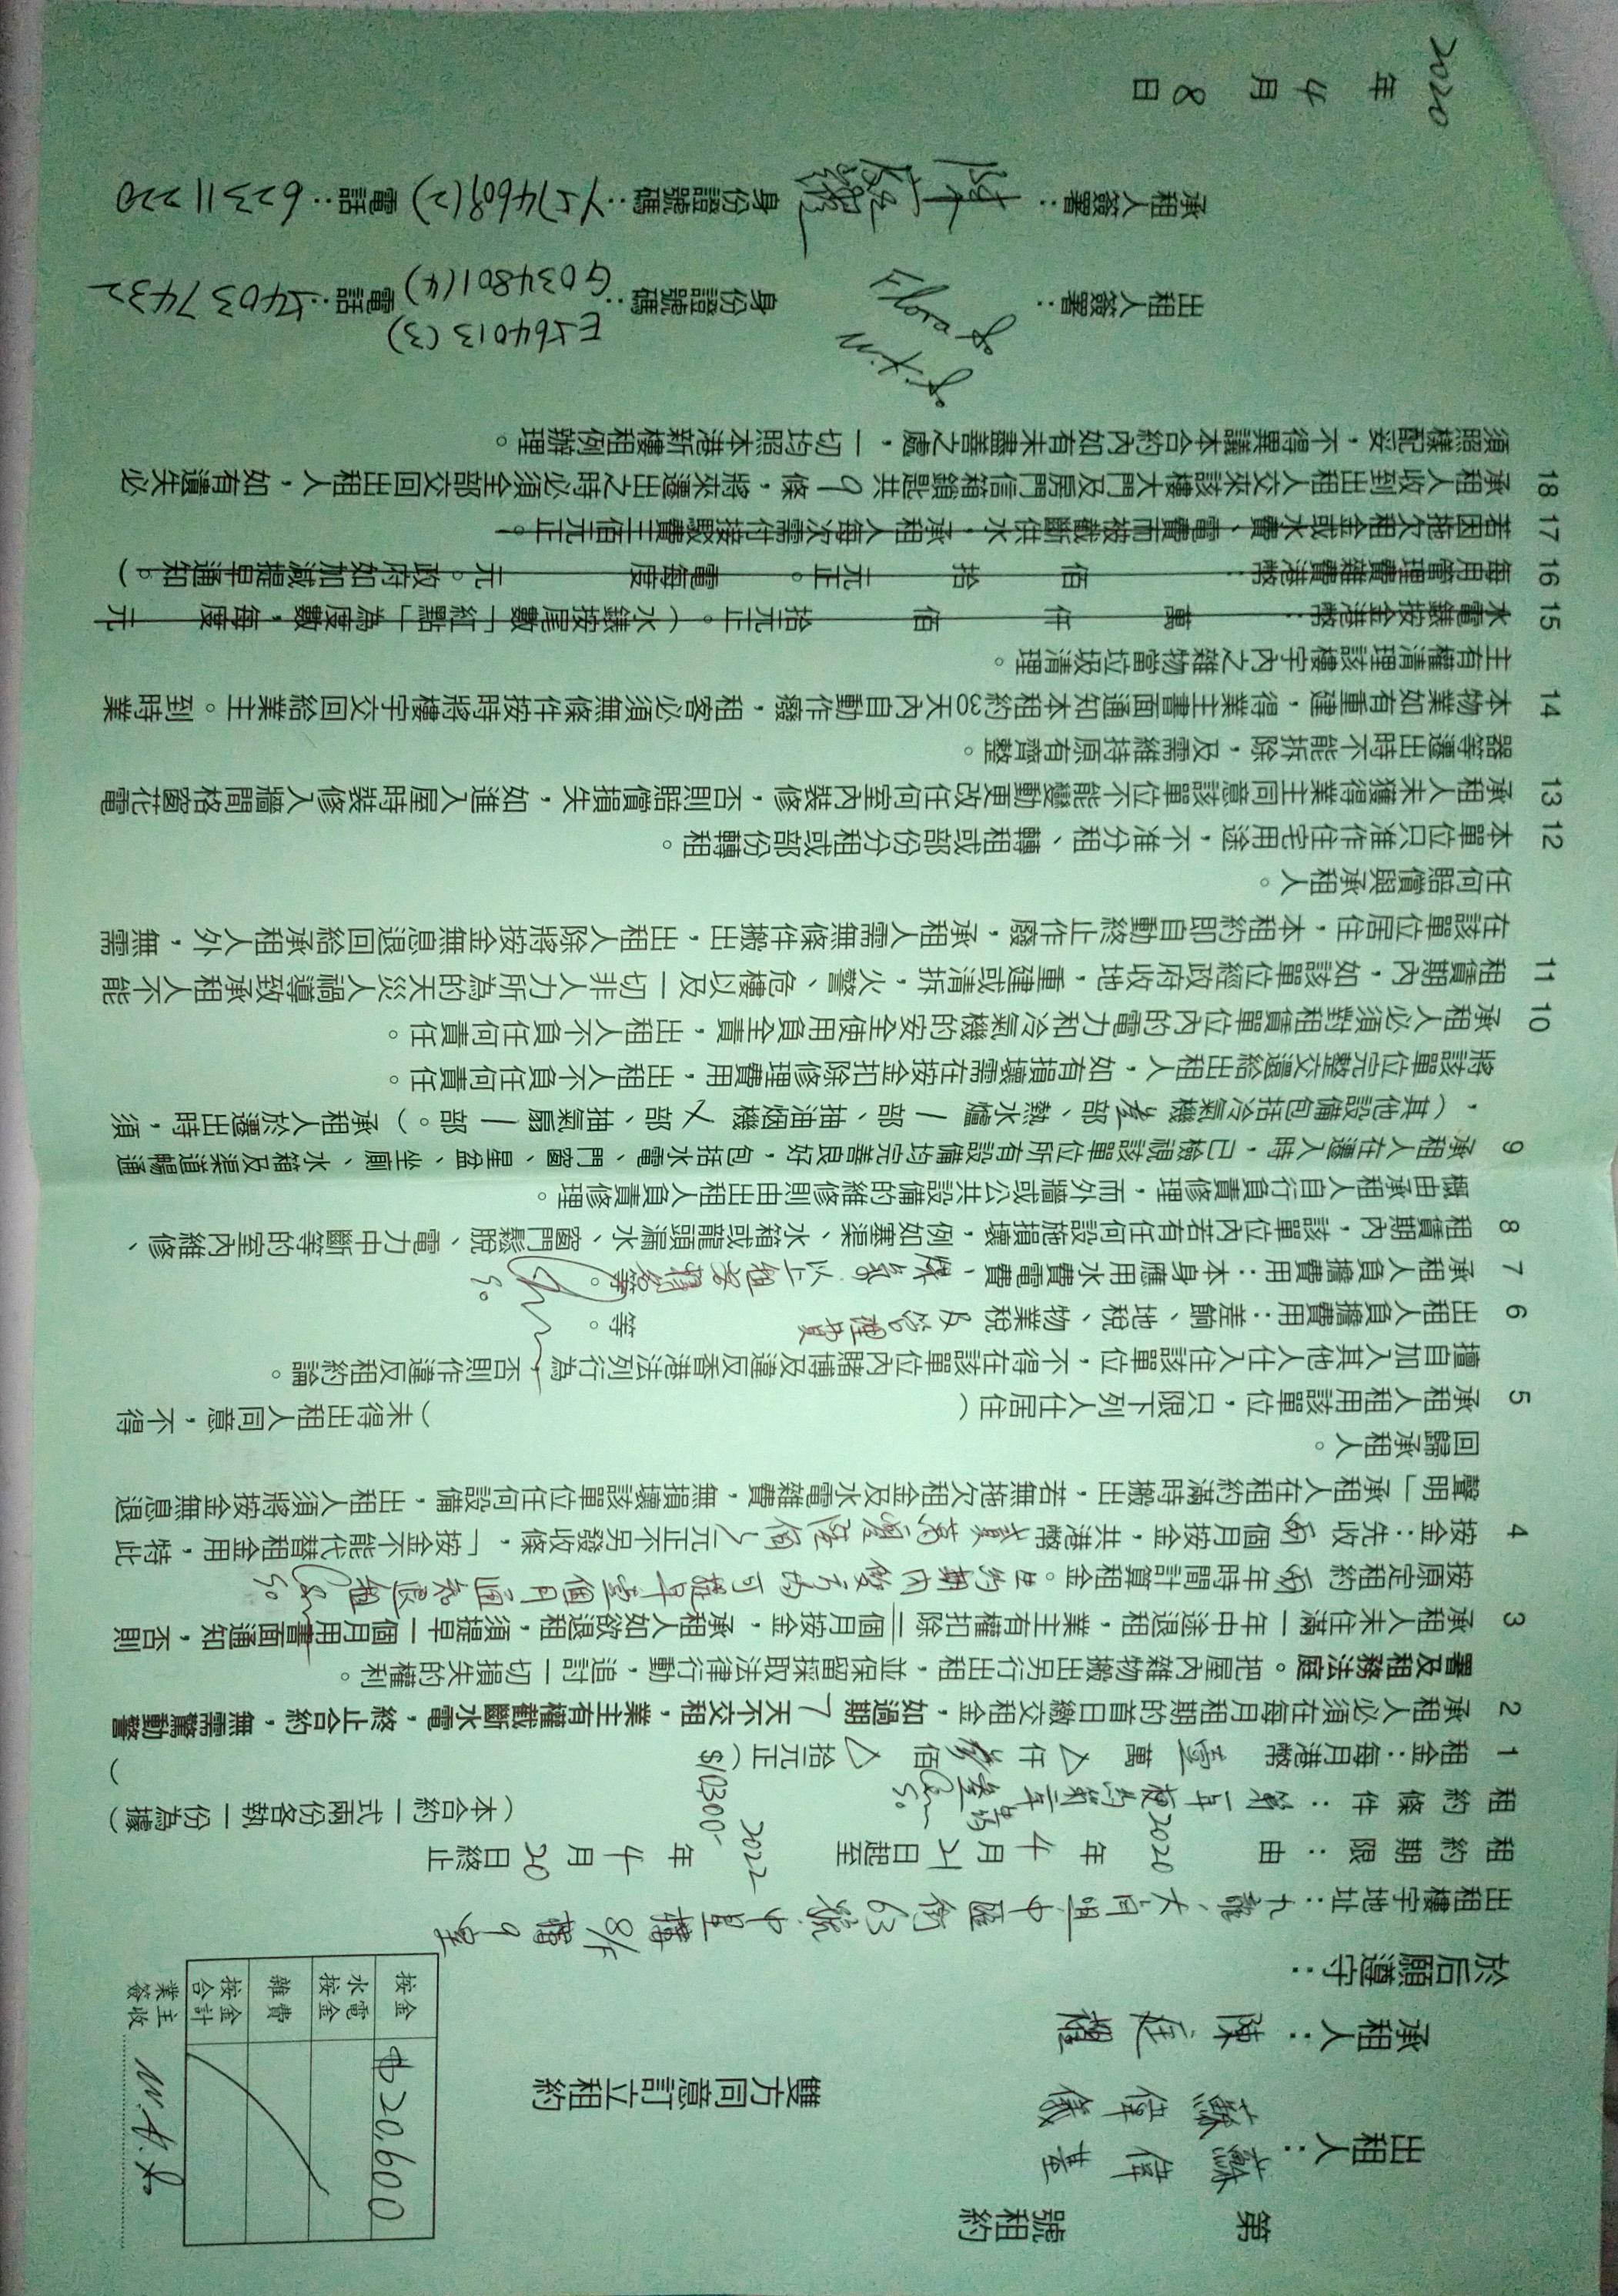 第 號租約
出租人：蘇偉基
蘇偉儀
雙方同意訂立租約
承租人：陳庭
於后願遵守：
按金 $20,600
水電按金
雜費
按金合計
業主簽收
出租樓宇地址：九龍大同 中匯街63號中星樓8/F 9室
租約期限：由 2020 年 4 月 21 日起至 2022 年 4 月 20 日終止
租約條件： （本合約一式兩份各執一份為據）
1 租金：每月港幣 壹 萬 仟 佰 拾元正($10300- )
2 承租人必須在每月租期的首日繳交租金，如過期 7 天不交租，業主有權截斷水電，終止合約，無需驚動警
署及租務法庭。把屋內雜物搬出另行出租，並保留採取法律行動，追討一切損失的權利。
3 承租人未住滿一年中途退租，業主有權扣除二個月按金，承租人如欲退租，須提早一個月用書面通知，否則
按原定租約 兩 年時間計算租金。
4 按金：先收 兩 個月按金，共港幣 元正不另發收條，「按金不能代替租金用，特此
聲明」承租人在租約滿時搬出，若無拖欠租金及水電雜費，無損壞該單位任何設備，出租人須將按金無息退
回歸承租人。
5 承租人租用該單位，只限下列人仕居住（ ）未得出租人同意，不得
擅自加入其他人仕入住該單位，不得在該單位內賭博及違反香港法列行為，否則作違反租約論。
6 出租人負擔費用：差餉、地稅、物業稅 及管理費 等。
7 承租人負擔費用：本身應用水費電費、煤氣 等。
8 租賃期內，該單位內若有任何設施損壞，例如塞渠、水箱或龍頭漏水、窗門鬆脫、電力中斷等的室內維修、
概由承租人自行負責修理，而外牆或公共設備的維修則由出租人負責修理。
9 承租人在遷入時，已檢視該單位所有設備均完善良好，包括水電、門窗、星盆、坐廁、水箱及渠道暢通
，（其他設備包括冷氣機 部、熱水爐 1 部、抽油烟機 X 部、抽氣扇 1 部。）承租人於遷出時，須
將該單位完整交還給出租人，如有損壞需在按金扣除修理費用，出租人不負任何責任。
10 承租人必須對租賃單位內的電力和冷氣機的安全使用負全責，出租人不負任何責任。
11 租賃期內，如該單位經政府收地，重建或清拆，火警、危樓以及一切非人力所為的天災人禍導致承租人不能
在該單位居住，本租約即自動終止作廢，承租人需無條件搬出，出租人除將按金無息退回給承租人外，無需
任何賠償與承租人。
12 本單位只准作住宅用途，不准分租、轉租或部份分租或部份轉租。
13 承租人未獲得業主同意該單位不能變動更改任何室內裝修，否則賠償損失，如進入屋時裝修入牆間格窗花電
器等遷出時不能拆除，及需維持原有齊整。
14 本物業如有重建，得業主書面通知本租約30天內自動作廢，租客必須無條件按時將樓宇交回給業主。到時業
主有權清理該樓宇內之雜物當垃圾清理。
15 水電錶按金港幣： 萬 仟 佰 拾元正。（水錶按尾數「紅點」為度數，每度 元
16 每月管理費雜費港幣： 佰 拾 元正。 電每度 元。政府如加減提早通知。）
17 若因拖欠租金或水費、電費而被截斷供水，承租人每次需付接駁費三佰元正。
18 承租人收到出租人交來該樓大門及房門信箱鎖匙共 9 條，將來遷出之時必須全部交回出租人，如有遺失必
須照樣配妥，不得異議本合約內如有未盡善之處，一切均照本港新樓租例辦理。
出租人簽署： 身份證號碼： E564013(3)
G034801(4) 電話：54037432
承租人簽署： 身份證號碼：Y517468(2) 電話：62311220
2020 年 4 月 8 日